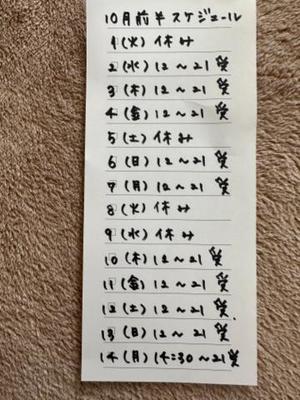 10月前半スケジュール
1(火)休み
2(水)12〜21受
3(木)12〜21受
4(金)12〜21受
5(土)休み
6(日)12〜21受
7(月)12〜21受
8(火)休み
9(水)休み
10(木)12〜21受
11(金)12〜21受
12(土)12〜21受
13(日)12〜21受
14(月)14:30〜21受